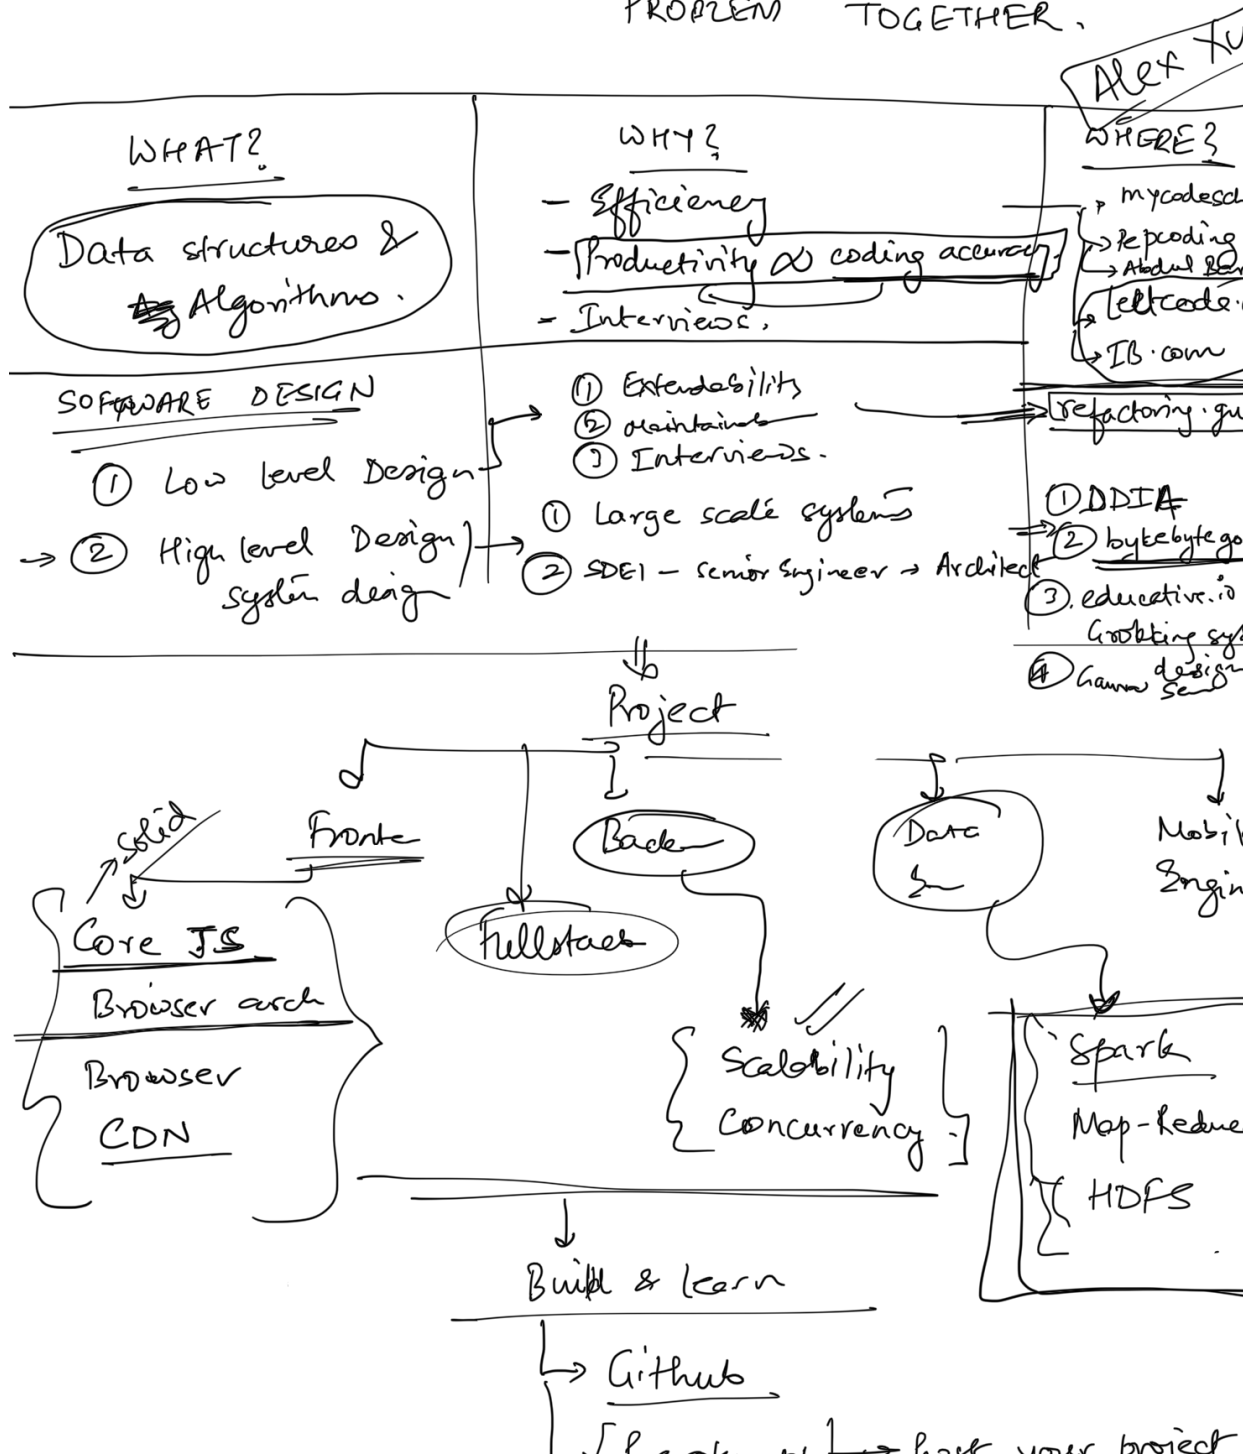 PROBLEM TOGETHER.
Alex Xu
WHAT?
Data structures &
Algorithms.
WHY?
- Efficiency
- Productivity ∝ coding accuracy.
- Interviews.
WHERE?
mycodesc
Pepcoding
Abdul Bar
Leetcode.
IB.com
SOFTWARE DESIGN
① Low level Design
② High level Design
system design
① Extendability
② Maintainab
③ Interviews.
① Large scale systems
② SDE1 - Senior Engineer → Architect
refactoring.gu
① DDIA
② bytebytego
③. educative.io
Grokking sys
design
④ Gaurav Sen
Project
Fronte
Backe
Fullstack
Data
Mobil
Engin
solid
Core JS
Browser arch
Browser
CDN
Scalability
Concurrency
Spark
Map-Reduce
HDFS
Build & learn
Github
host your project